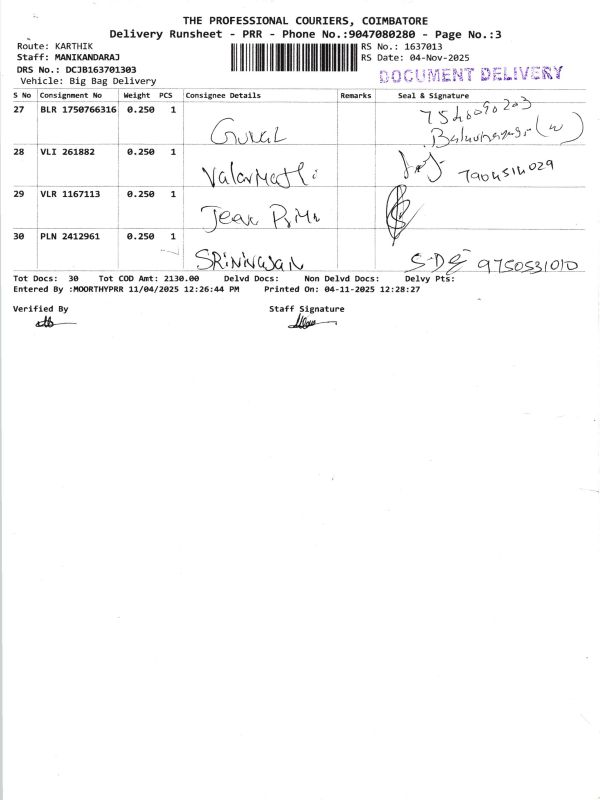 THE PROFESSIONAL COURIERS, COIMBATORE
Delivery Runsheet - PRR - Phone No.:9047080280 - Page No.:3
Route: KARTHIK
RS No.: 1637013
Staff: MANIKANDARAJ
RS Date: 04-Nov-2025
DRS No.: DCJB163701303
DOCUMENT DELIVERY
Vehicle: Big Bag Delivery
S No Consignment No Weight PCS Consignee Details Remarks Seal & Signature
27 BLR 1750766316 0.250 1
28 VLI 261882 0.250 1 Valarmathi 7904514029
29 VLR 1167113 0.250 1 Jean
30 PLN 2412961 0.250 1 SRiNiwasan 9750531010
Tot Docs: 30 Tot COD Amt: 2130.00 Delvd Docs: Non Delvd Docs: Delvy Pts:
Entered By :MOORTHYPRR 11/04/2025 12:26:44 PM Printed On: 04-11-2025 12:28:27
Verified By Staff Signature